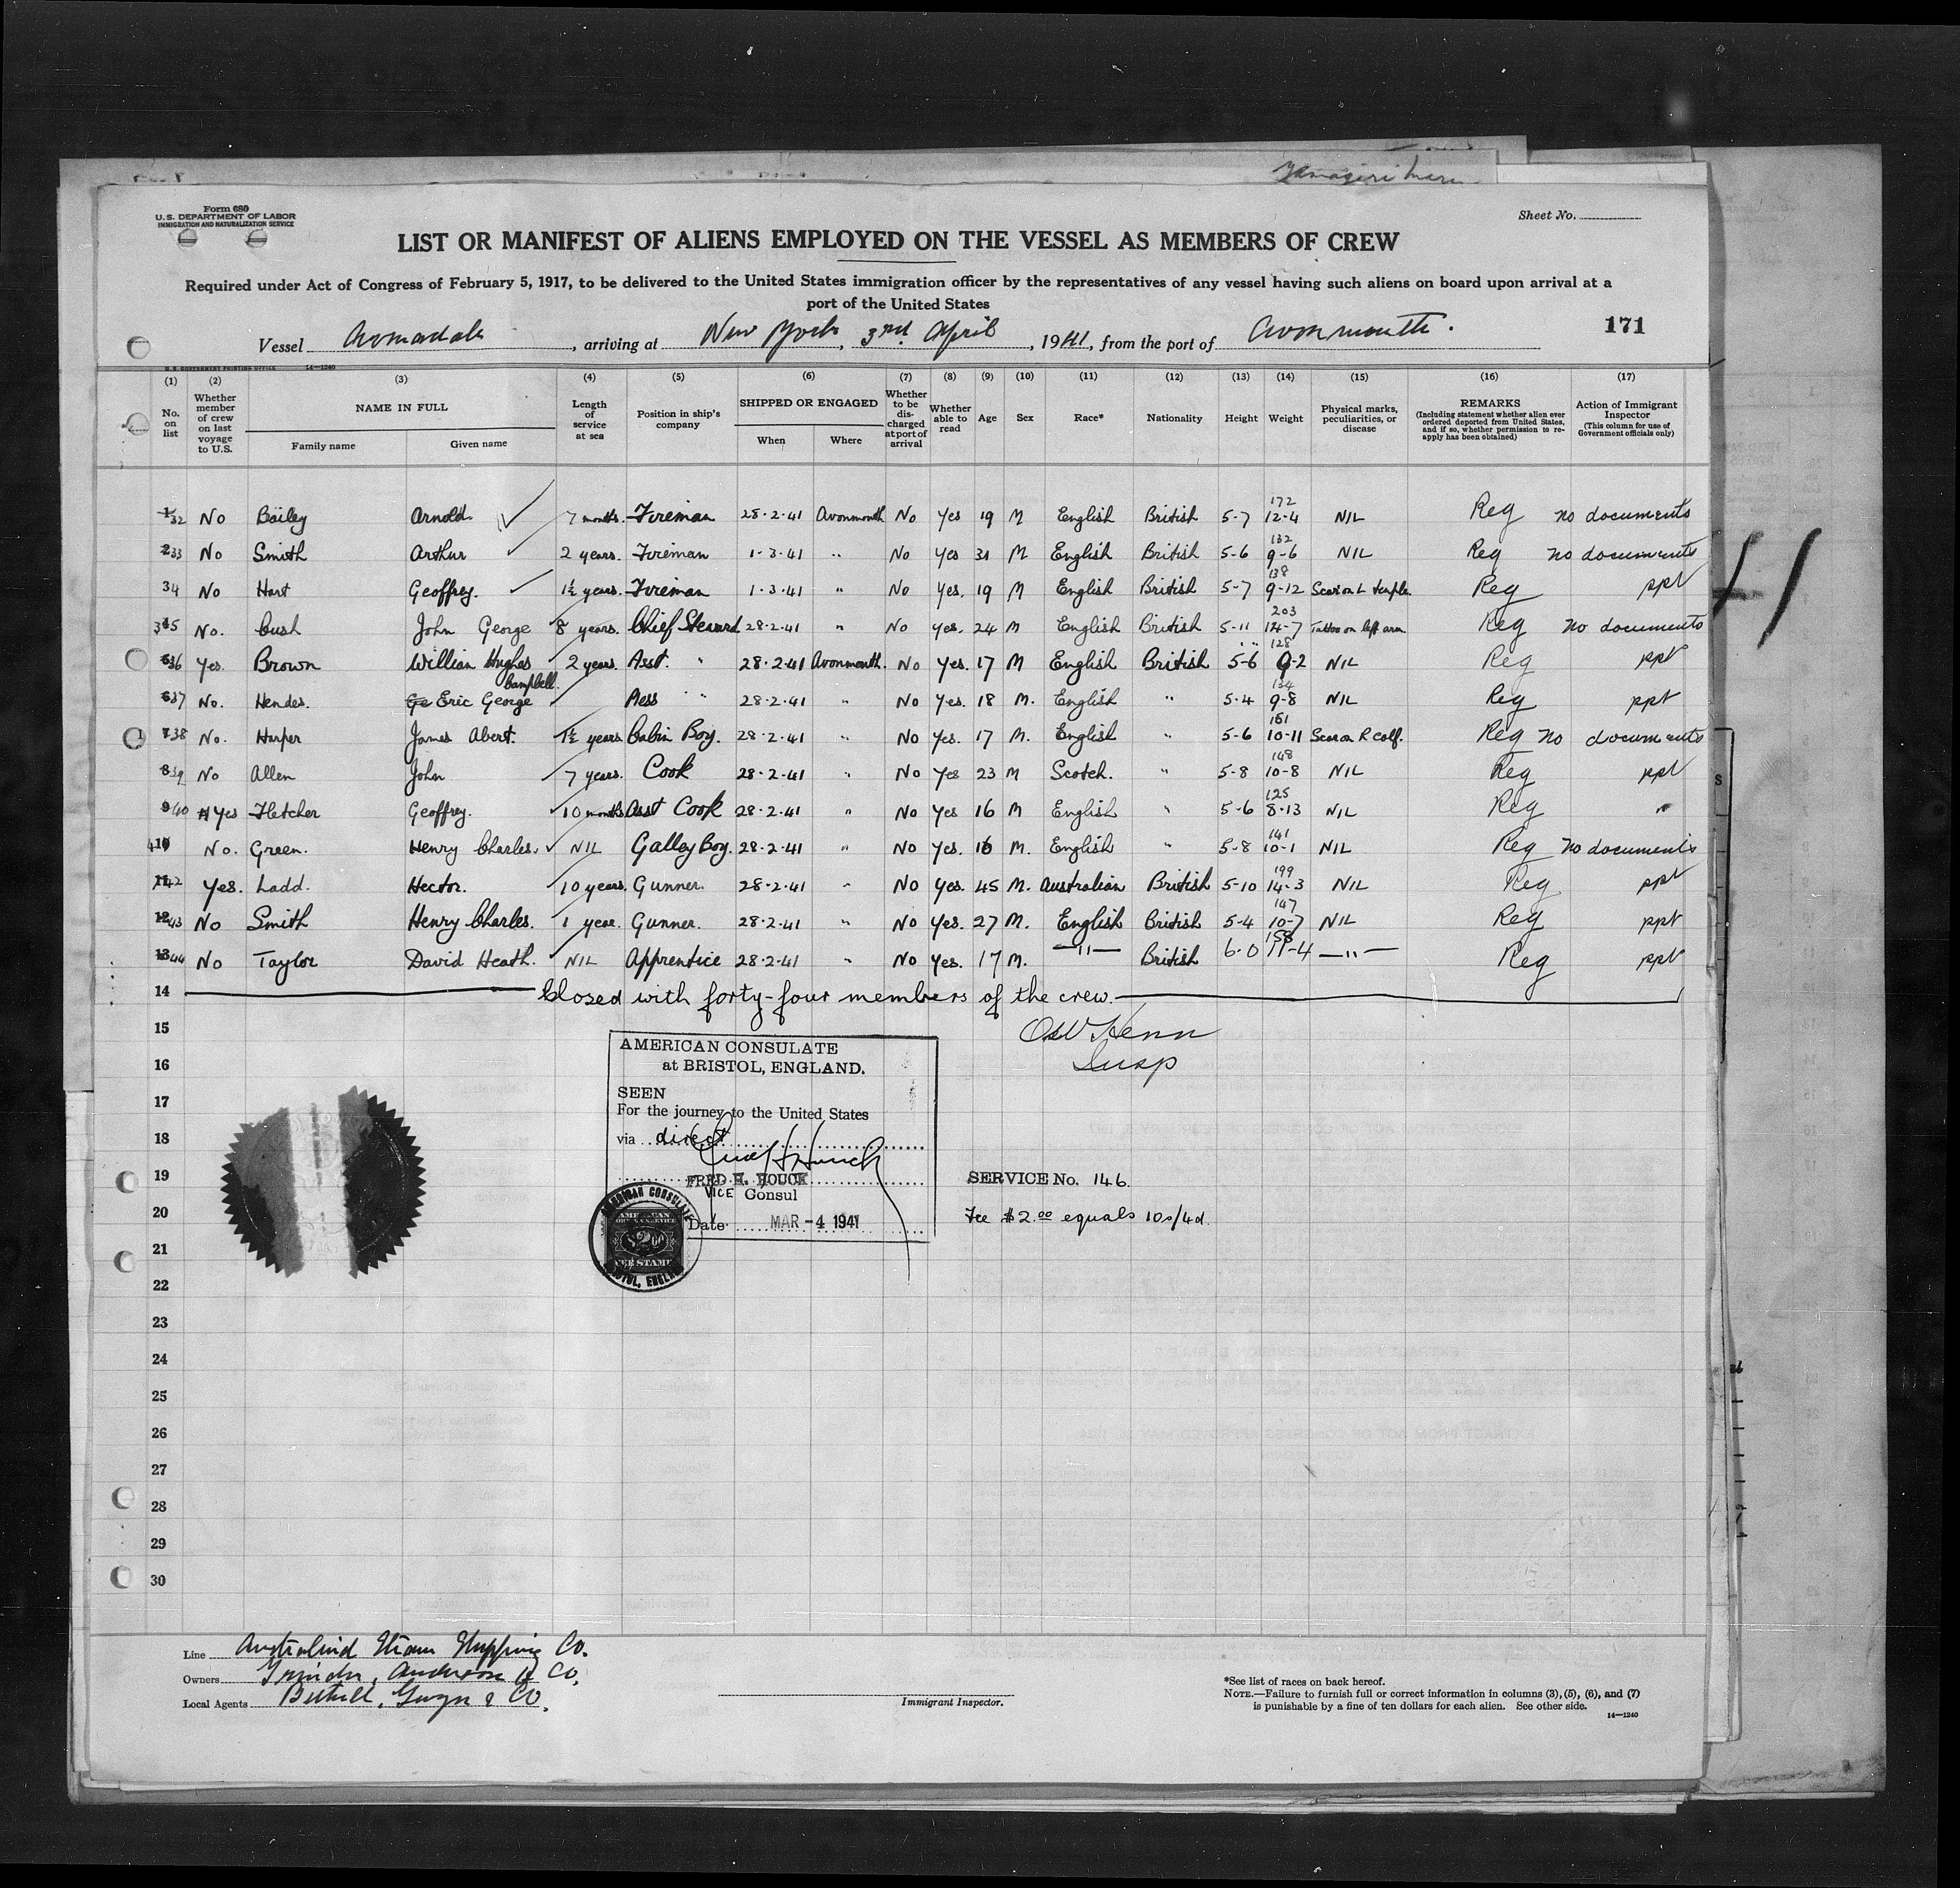 Yamagiri Maru
Form 680
U.S. DEPARTMENT OF LABOR
IMMIGRATION AND NATURALIZATION SERVICE
Sheet No.
LIST OR MANIFEST OF ALIENS EMPLOYED ON THE VESSEL AS MEMBERS OF CREW
Required under Act of Congress of February 5, 1917, to be delivered to the United States immigration officer by the representatives of any vessel having such aliens on board upon arrival at a
port of the United States
171
Vessel Armadale, arriving at New York, 3rd April, 1941, from the port of Avonmouth.
U. S. GOVERNMENT PRINTING OFFICE 14—1240
(1) (2) (3) (4) (5) (6) (7) (8) (9) (10) (11) (12) (13) (14) (15) (16) (17)
No. on list
Whether member of crew on last voyage to U.S.
NAME IN FULL
Family name Given name
Length of service at sea
Position in ship's company
SHIPPED OR ENGAGED
When Where
Whether to be discharged at port of arrival
Whether able to read
Age
Sex
Race*
Nationality
Height
Weight
Physical marks, peculiarities, or disease
REMARKS
(Including statement whether alien ever ordered deported from United States, and if so, whether permission to re-apply has been obtained)
Action of Immigrant Inspector
(This column for use of Government officials only)
1 32 No Bailey Arnold 7 months. Fireman 28·2·41 Avonmouth No Yes 19 M English British 5-7 172 12-4 NIL Reg no documents
2 33 No Smith Arthur 2 years. Fireman 1·3·41 " No Yes 31 M English British 5-6 132 9-6 NIL Reg no documents
34 No Hart Geoffrey. 1½ years. Fireman 1·3·41 " No Yes. 19 M English British 5-7 138 9-12 Scar on L temple Reg ppt
35 No. Cush John George 8 years. Chief Steward 28·2·41 " No Yes. 24 M English British 5-11 203 14-7 Tattoo on left arm Reg no documents
36 Yes. Brown William Hughes Campbell. 2 years. Asst. " 28·2·41 Avonmouth. No Yes. 17 M English British 5-6 128 9-2 NIL Reg ppt
6 37 No. Hendes. Ge Eric George Mess " 28·2·41 " No Yes. 18 M. English " 5-4 134 9-8 NIL Reg ppt
7 38 No. Harper James Abert. 1½ years Cabin Boy. 28·2·41 " No Yes. 17 M. English " 5-6 151 10-11 Scar on R calf. Reg no documents
8 39 No Allen John 7 years. Cook 28·2·41 " No Yes 23 M Scotch. " 5-8 148 10-8 NIL Reg ppt
9 40 Yes Fletcher Geoffrey. 10 months Asst Cook 28·2·41 " No Yes 16 M English " 5-6 125 8-13 NIL Reg "
10 41 No. Green. Henry Charles. NIL Galley Boy. 28·2·41 " No Yes. 16 M. English " 5-8 141 10-1 NIL Reg no documents
11 42 Yes. Ladd. Hector. 10 years. Gunner. 28·2·41 " No Yes. 45 M. Australian British 5-10 199 14-3 NIL Reg ppt
12 43 No Smith Henry Charles. 1 year. Gunner. 28·2·41 " No Yes. 27 M. English British 5-4 147 10-7 NIL Reg ppt
13 44 No Taylor David Heath. NIL Apprentice 28·2·41 " No Yes. 17 M. —"— British 6-0 158 11-4 —"— Reg ppt
14 Closed with forty-four members of the crew.
15
Insp
16
17
18
19
20
21
22
23
24
25
26
27
28
29
30
AMERICAN CONSULATE
at BRISTOL, ENGLAND.
SEEN
For the journey to the United States
via direct
FRED H. HOUCK
VICE Consul
Date MAR -4 1941
AMERICAN CONSULATE
BRISTOL, ENGLAND
FEE STAMP
SERVICE No. 146.
Fee $2.00 equals 10s/4d.
Line Australind Steam Shipping Co.
Owners Trinder, Anderson & Co.
Local Agents Bethell, Gwyn & Co.
Immigrant Inspector.
*See list of races on back hereof.
NOTE.—Failure to furnish full or correct information in columns (3), (5), (6), and (7)
is punishable by a fine of ten dollars for each alien. See other side.
14—1240